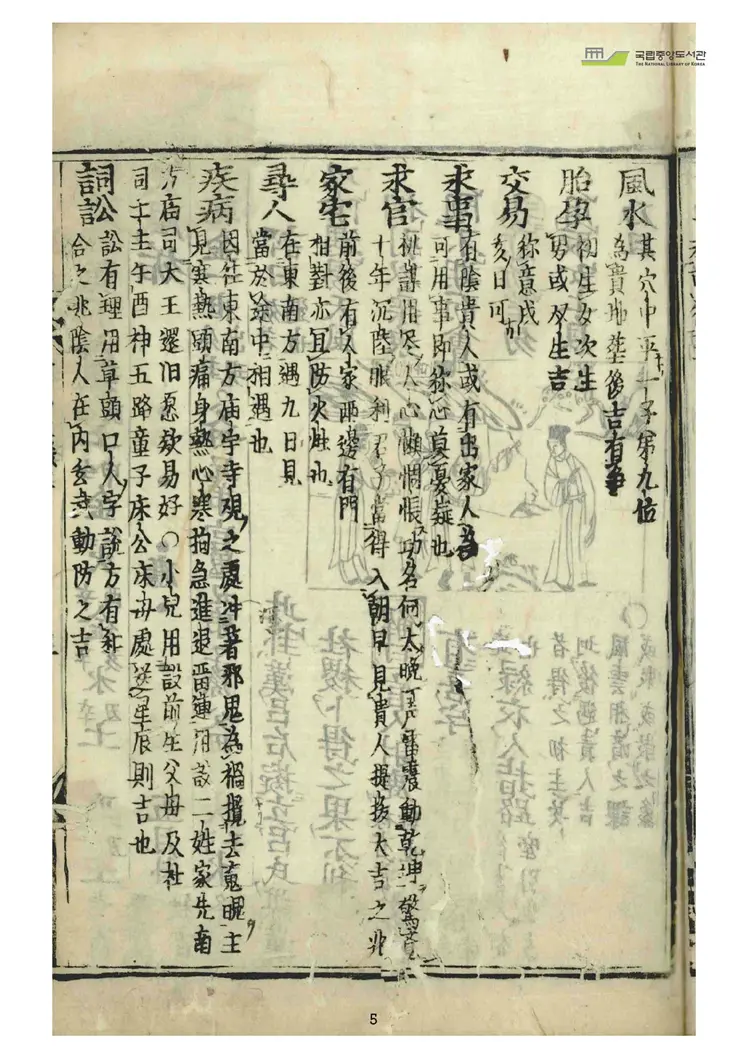 국립중앙도서관
THE NATIONAL LIBRARY OF KOREA
風水
其穴中平一子第九位
為貴地塟後吉有
胎孕
初生女次生
男或双生吉
交易
称意戌
亥日可
求事
有陰貴人或有出家人
可用事即称心莫憂疑也
求官
謀用尽人心懶惆悵功名何太晚一声雷震動乾坤
十年沉陸脈利君子當得入朝早見貴人提拔大吉之兆
家宅
前後有人家那邊有門
相對亦宜防火燭也
尋人
在東南方遇九日見
當於途中相遇也
疾病
因往東南方庙宇寺观之處冲著邪鬼為禍攪去魂魄主
見寒熱頭痛身熱心寒拍急進退當運用設二姓家先南
方庙司大王還旧愿欲易好〇小兒用設前生父母及社
司土主午酉神五路童子床公床母處送星辰則吉也
詞訟
訟有理用草頭口人字說方有
合之兆陰人在内動防之吉
5